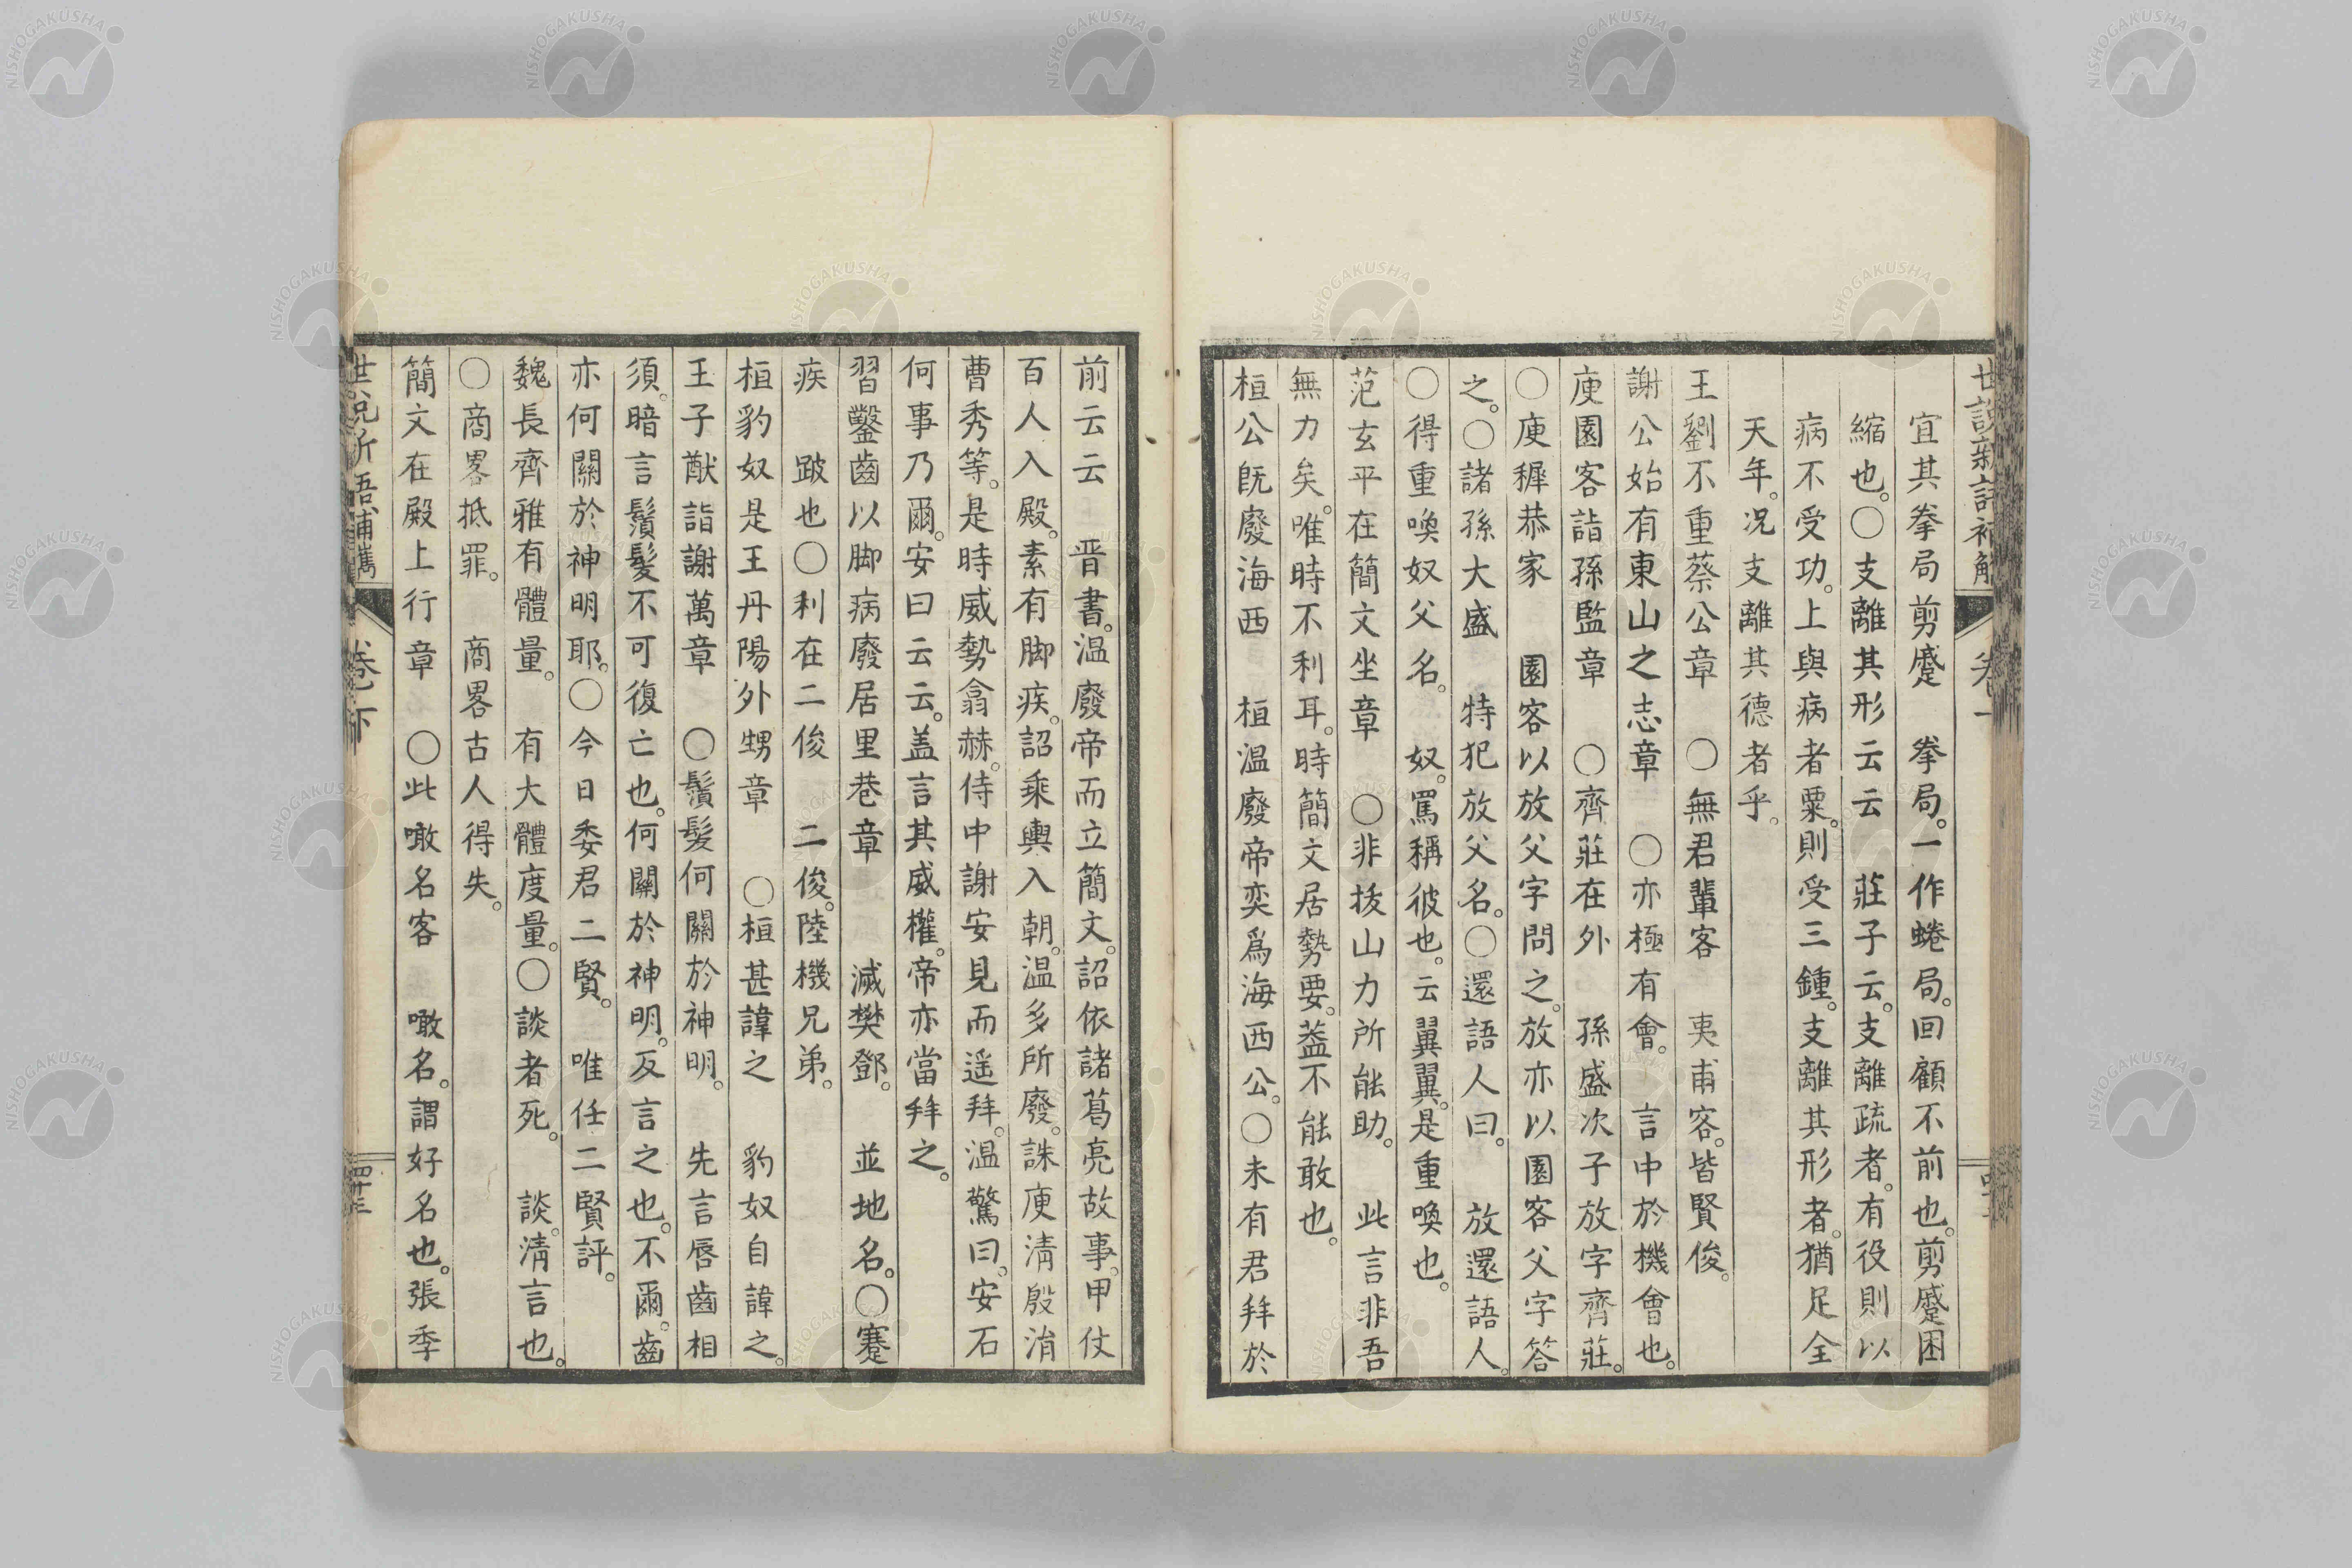 宜其拳局剪蹙　拳局。一作蜷局。回顧不前也。剪蹙困
縮也。○支離其形云云　莊子云。支離疏者。有役則以
病不受功。上與病者粟。則受三鍾。支離其形者。猶足全
天年。况支離其德者乎。
王劉不重蔡公章　○無君輩客　夷甫客。皆賢俊。
謝公始有東山之志章　○亦極有會。　言中於機會也。
庾園客詣孫監章　○齊莊在外　孫盛次子放字齊莊。
○庾穉恭家　園客以放父字問之。放亦以園客父字答
之。○諸孫大盛　特犯放父名。○還語人曰。　放還語人。
○得重喚奴父名。　奴。罵稱彼也。云翼翼。是重喚也。
范玄平在簡文坐章　○非拔山力所能助。　此言非吾
無力矣。唯時不利耳。時簡文居勢要。益不能敢也。
桓公既廢海西　桓温廢帝奕爲海西公。○未有君拜於
前云云　晋書。温廢帝而立簡文。詔依諸葛亮故事。甲仗
百人入殿。素有脚疾。詔乘輿入朝。温多所廢。誅庾淸殷涓
曹秀等。是時威勢翕赫。侍中謝安見而遥拜。温驚曰。安石
何事乃爾。安曰云云。盖言其威權。帝亦當拜之。
習鑿齒以脚病廢居里巷章　滅樊鄧。　並地名。○蹇
疾　跛也○利在二俊　二俊。陸機兄弟。
桓豹奴是王丹陽外甥章　○桓甚諱之　豹奴自諱之。
王子猷詣謝萬章　○鬚髮何關於神明。　先言唇齒相
須。暗言鬚髮不可復亡也。何關於神明。反言之也。不爾。齒
亦何關於神明耶。○今日委君二賢。　唯任二賢評。
魏長齊雅有體量。　有大體度量。○談者死。　談。淸言也。
○商畧抵罪。　商畧古人得失。
簡文在殿上行章　○此噉名客　噉名。謂好名也。張季
卷下
NISHOGAKUSHA